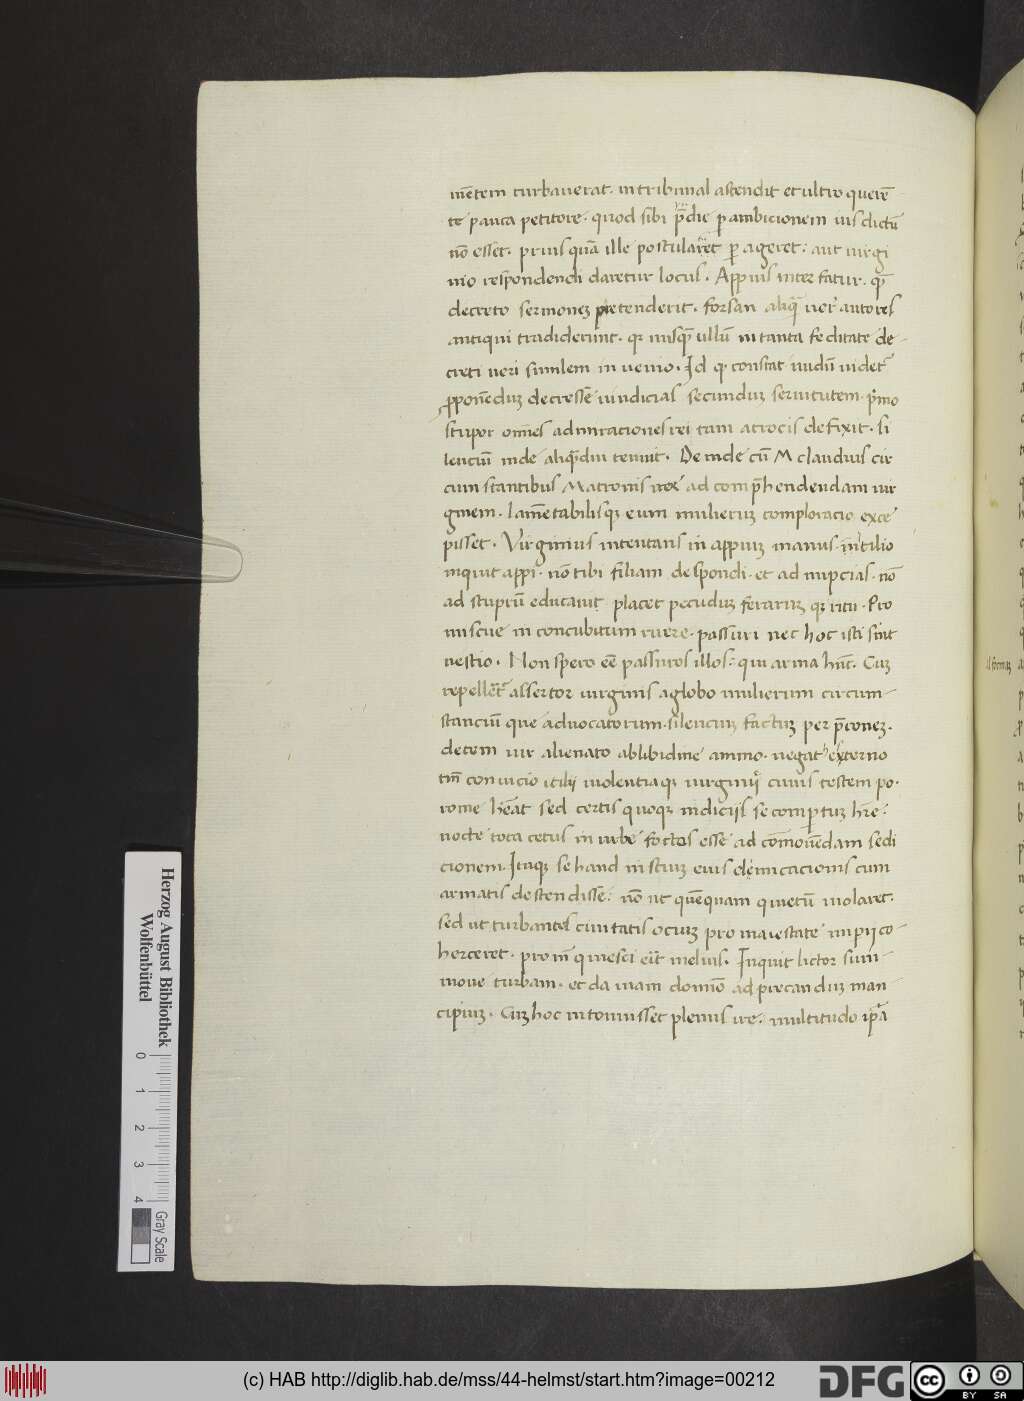 mētem turbauerat. in tribunal astendit et ultro querē-
te pauca petitore. quod sibi p̄die p ambicionem ius dictū
nō esset. prius quā ille postularet p ageret: aut uirgi
nio respondendi daretur locus. Appius inter fatur. q̄
decreto sermonez pretenderit. forsan aliq̄ uer' autores
antiqui tradiderunt. qr nusq̄ ullū in tanta feditate de-
creti ueri similem in uenio. Id q constat nudū uidet
pponēduz decresse uindicias secunduz seruitutem. pͥmo
stupor omēs admiraciones rei tam atrocis defixit. si
lenciū inde aliq̄diu tenuit. De inde cū M claudius cir
cum stantibus Matronis ad comp̄hendendam uir
ginem. lamētabilisqz eum mulieruz comploracio exce
pisset. Virginius intentans in appiuz manus. in tilio
inquit appi. nō tibi filiam despondi. et ad nupcias. nō
ad stuprū educaui placet pecuduz feraruz qz ritu. Pro
miscue in concubitum ruere. passuri nec hoc isti sint
nestio. Non spero eē passuros illos: qui arma hn̄t. Cuz
repellet assertor uirginis a globo mulierum circum-
stanciū que aduocatorum. silenciuz factuz per p̄conez.
decem uir alienato ab libidine animo. negat hexterno
tm̄ conuicio icilij uiolentiaqz uirginij cuius testem po.
rome hēat sed certis quoqz indicijs se compertuz hr̄e:
nocte tota cetus in urbe factos esse ad cōmouēdam sedi
cionem. Itaqz se haud insciuz eius dēmicacionis cum
armatis destendisse: nō ut quēquam quietū uiolaret.
sed ut turbantes ciuitatis ociuz pro maiestate impij co-
herceret. proin̄ quiesci erit melius. Inquit lictor sum-
moue turbam. et da uiam domīo ad precanduz man
cipiuz. Cuz hoc intonuisset plenus ire: multitudo ipa
Herzog August Bibliothek
Wolfenbüttel
0 1 2 3 4
Gray Scale
(c) HAB http://diglib.hab.de/mss/44-helmst/start.htm?image=00212
DFG
cc BY SA